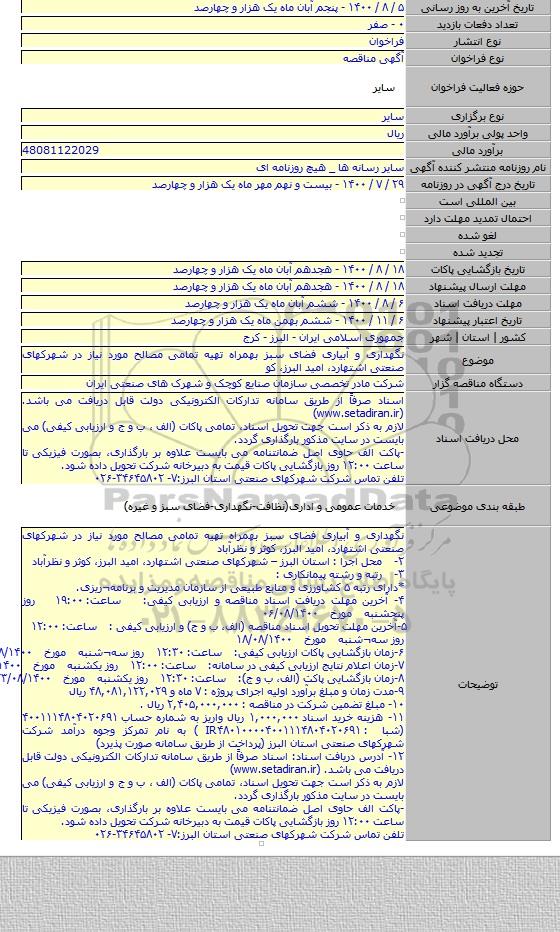 تاریخ آخرین به روز رسانی ۵ / ۸ / ۱۴۰۰ - پنجم آبان ماه یک هزار و چهارصد
تعداد دفعات بازدید ۰ - صفر
نوع انتشار فراخوان
نوع فراخوان آگهی مناقصه
حوزه فعالیت فراخوان سایر
نوع برگزاری سایر
واحد پولی برآورد مالی ریال
برآورد مالی 48081122029
نام روزنامه منتشر کننده آگهی سایر رسانه ها _ هیچ روزنامه ای
تاریخ درج آگهی در روزنامه ۲۹ / ۷ / ۱۴۰۰ - بیست و نهم مهر ماه یک هزار و چهارصد
بین المللی است
احتمال تمدید مهلت دارد
لغو شده
تجدید شده
تاریخ بازگشایی پاکات ۱۸ / ۸ / ۱۴۰۰ - هجدهم آبان ماه یک هزار و چهارصد
مهلت ارسال پیشنهاد ۱۸ / ۸ / ۱۴۰۰ - هجدهم آبان ماه یک هزار و چهارصد
مهلت دریافت اسناد ۶ / ۸ / ۱۴۰۰ - ششم آبان ماه یک هزار و چهارصد
تاریخ اعتبار پیشنهاد ۶ / ۱۱ / ۱۴۰۰ - ششم بهمن ماه یک هزار و چهارصد
کشور | استان | شهر جمهوری اسلامی ایران - البرز - کرج
موضوع نگهداری و آبیاری فضای سبز بهمراه تهیه تمامی مصالح مورد نیاز در شهرکهای
صنعتی اشتهارد، امید البرز، کو
دستگاه مناقصه گزار شرکت مادر تخصصی سازمان صنایع کوچک و شهرک های صنعتی ایران
محل دریافت اسناد اسناد صرفاً از طریق سامانه تدارکات الکترونیکی دولت قابل دریافت می باشد.
(www.setadiran.ir)
لازم به ذکر است جهت تحویل اسناد، تمامی پاکات (الف ، ب و ج و ارزیابی کیفی) می
بایست در سایت مذکور بارگذاری گردد.
-پاکت الف حاوی اصل ضمانتنامه می بایست علاوه بر بارگذاری، بصورت فیزیکی تا
ساعت ۱۲:۰۰ روز بازگشایی پاکات قیمت به دبیرخانه شرکت تحویل داده شود.
تلفن تماس شرکت شهرکهای صنعتی استان البرز:۷- ۳۴۶۴۵۸۰۲-۰۲۶
طبقه بندی موضوعی خدمات عمومی و اداری(نظافت-نگهداری-فضای سبز و غیره)
توضیحات نگهداری و آبیاری فضای سبز بهمراه تهیه تمامی مصالح مورد نیاز در شهرکهای
صنعتی اشتهارد، امید البرز، کوثر و نظرآباد
۲- محل اجرا : استان البرز – شهرکهای صنعتی اشتهارد، امید البرز، کوثر و نظرآباد
۳- رتبه و رشته پیمانکاری :
*دارای رتبه ۵ کشاورزی و منابع طبیعی از سازمان مدیریت و برنامه¬ریزی.
۴- آخرین مهلت دریافت اسناد مناقصه و ارزیابی کیفی: ساعت: ۱۹:۰۰ روز
پنجشنبه مورخ ۰۶/۰۸/۱۴۰۰
۵-آخرین مهلت تحویل اسناد مناقصه (الف، ب و ج) و ارزیابی کیفی : ساعت: ۱۲:۰۰
روز سه¬شنبه مورخ ۱۸/۰۸/۱۴۰۰
۶-زمان بازگشایی پاکات ارزیابی کیفی: ساعت: ۱۲:۳۰ روز سه¬شنبه مورخ
۷-زمان اعلام نتایج ارزیابی کیفی در سامانه: ساعت: ۱۲:۰۰ روز یکشنبه مورخ
۸-زمان بازگشایی پاکت (الف، ب و ج): ساعت: ۱۲:۳۰ روز یکشنبه مورخ
۹-مدت زمان و مبلغ برآورد اولیه اجرای پروژه : ۷ ماه و ۴۸,۰۸۱,۱۲۲,۰۲۹ ریال
۱۰- مبلغ تضمین شرکت در مناقصه : ۲,۴۰۵,۰۰۰,۰۰۰ ریال .
۱۱- هزینه خرید اسناد ۱,۰۰۰,۰۰۰ ریال واریز به شماره حساب ۴۰۰۱۱۱۴۸۰۴۰۲۰۶۹۱
(شبا : IR۴۸۰۱۰۰۰۰۴۰۰۱۱۱۴۸۰۴۰۲۰۶۹۱ ) به نام تمرکز وجوه درآمد شرکت
شهرکهای صنعتی استان البرز (پرداخت از طریق سامانه صورت پذیرد)
۱۲- آدرس دریافت اسناد: اسناد صرفاً از طریق سامانه تدارکات الکترونیکی دولت قابل
دریافت می باشد. (www.setadiran.ir)
لازم به ذکر است جهت تحویل اسناد، تمامی پاکات (الف ، ب و ج و ارزیابی کیفی) می
بایست در سایت مذکور بارگذاری گردد.
-پاکت الف حاوی اصل ضمانتنامه می بایست علاوه بر بارگذاری، بصورت فیزیکی تا
ساعت ۱۲:۰۰ روز بازگشایی پاکات قیمت به دبیرخانه شرکت تحویل داده شود.
تلفن تماس شرکت شهرکهای صنعتی استان البرز:۷- ۳۴۶۴۵۸۰۲-۰۲۶
ParsNamadData